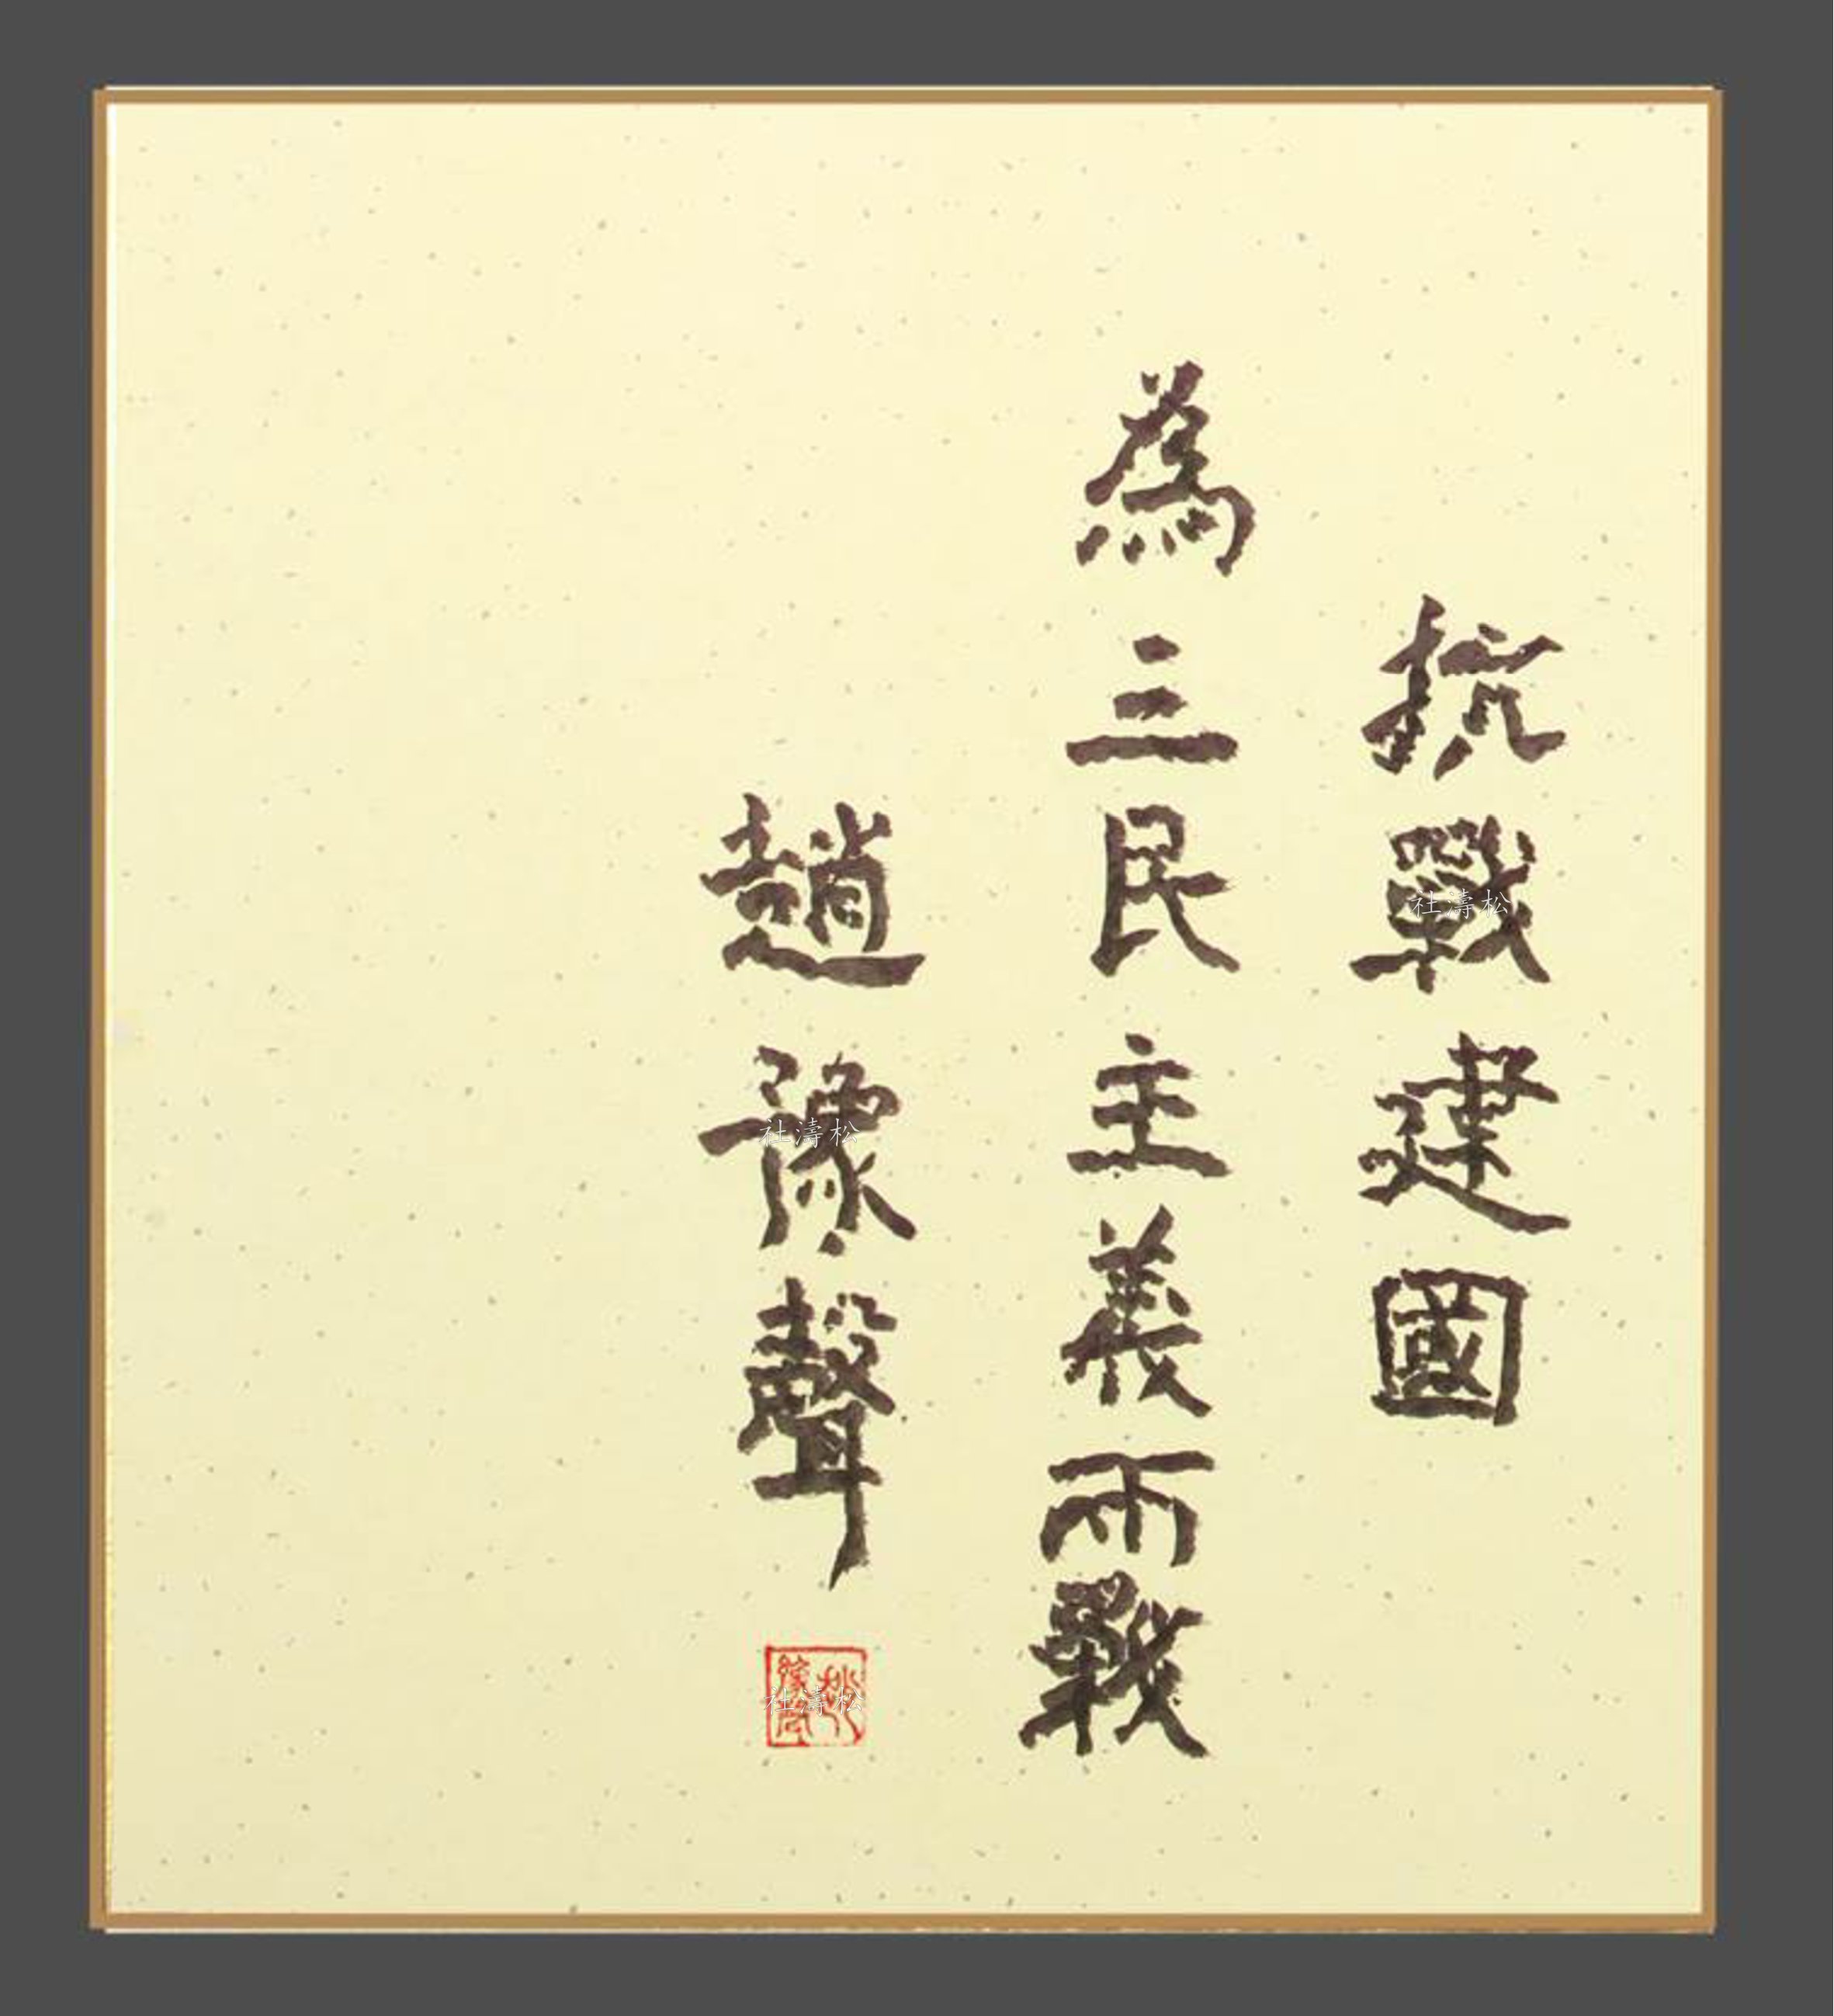 抗戰建國
為三民主義而戰
趙豫聲
松濤社
松濤社
松濤社